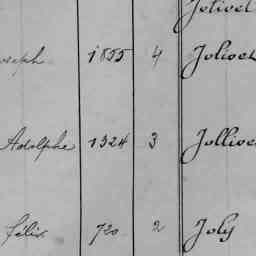 Jolivet
oseph 1855 4 Jolivet
Adolphe 1324 3 Jollive
Félix 720 2 Joly